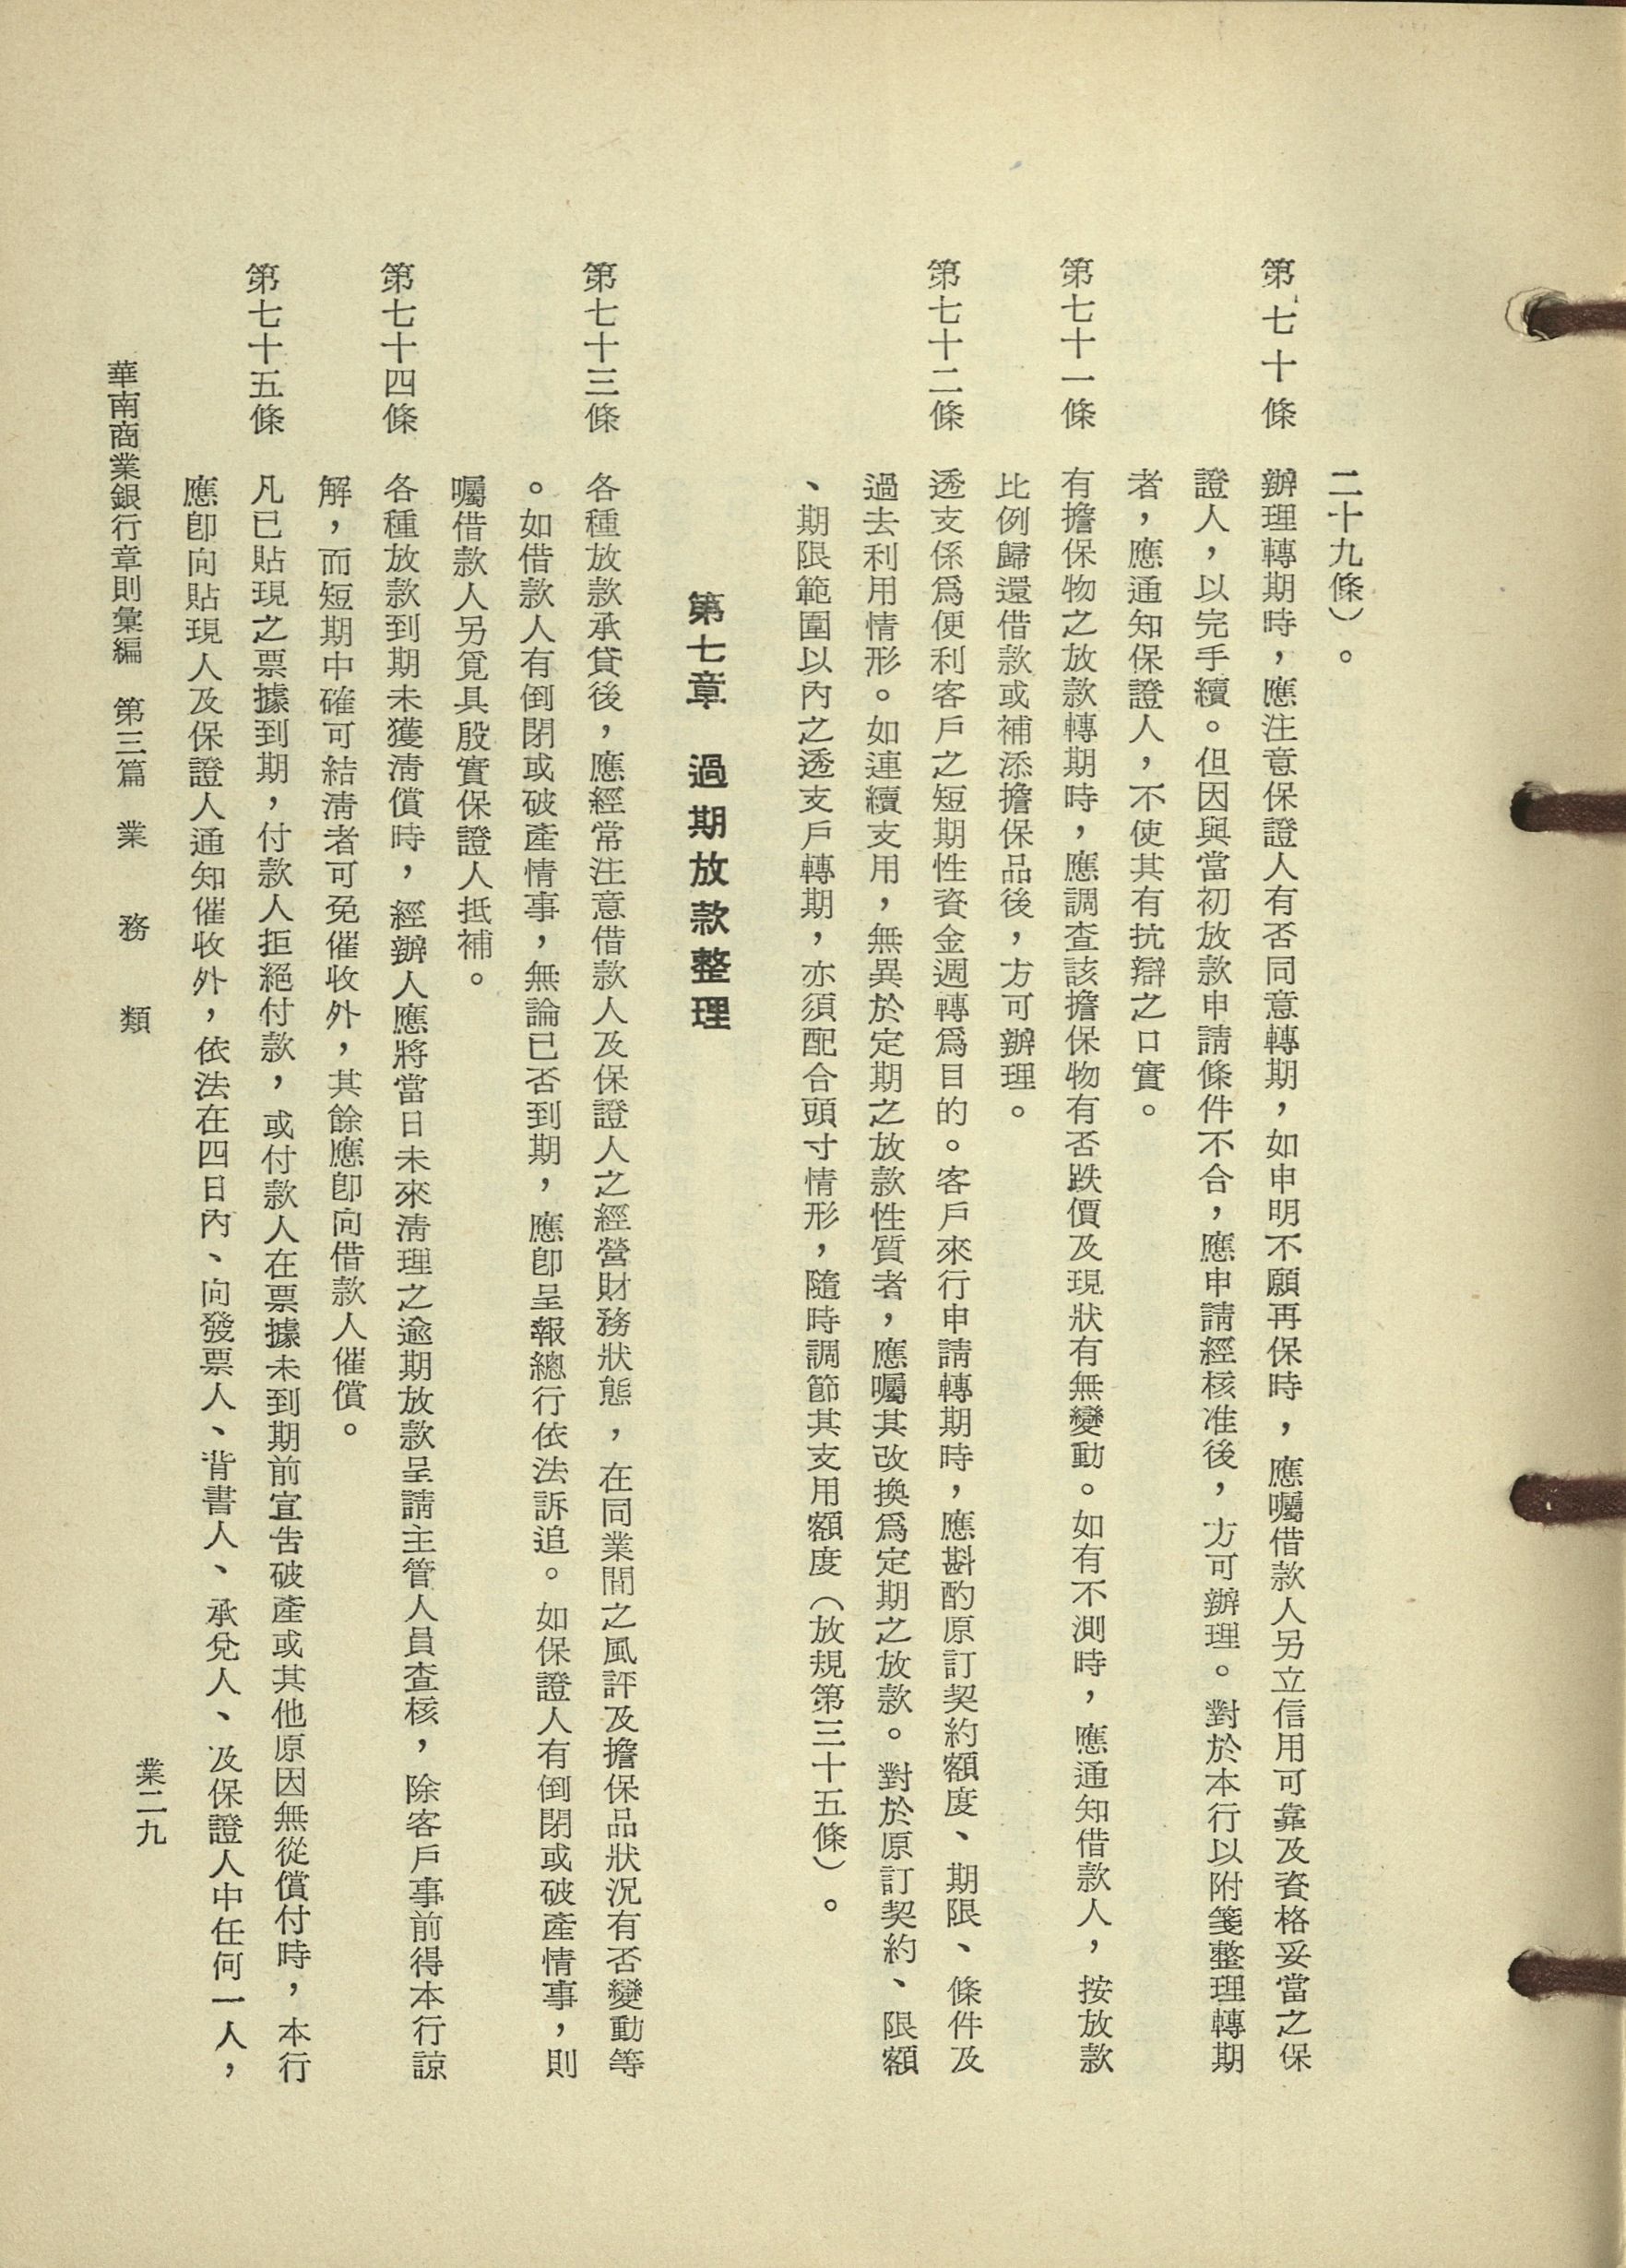 二十九條）。
第七十條　辦理轉期時，應注意保證人有否同意轉期，如申明不願再保時，應囑借款人另立信用可靠及資格妥當之保
證人，以完手續。但因與當初放款申請條件不合，應申請經核准後，方可辦理。對於本行以附箋整理轉期
者，應通知保證人，不使其有抗辯之口實。
第七十一條　有擔保物之放款轉期時，應調查該擔保物有否跌價及現狀有無變動。如有不測時，應通知借款人，按放款
比例歸還借款或補添擔保品後，方可辦理。
第七十二條　透支係爲便利客戶之短期性資金週轉爲目的。客戶來行申請轉期時，應斟酌原訂契約額度、期限、條件及
過去利用情形。如連續支用，無異於定期之放款性質者，應囑其改換爲定期之放款。對於原訂契約、限額
、期限範圍以內之透支戶轉期，亦須配合頭寸情形，隨時調節其支用額度（放規第三十五條）。
第七章　過期放款整理
第七十三條　各種放款承貸後，應經常注意借款人及保證人之經營財務狀態，在同業間之風評及擔保品狀況有否變動等
。如借款人有倒閉或破產情事，無論已否到期，應卽呈報總行依法訴追。如保證人有倒閉或破產情事，則
囑借款人另覓具殷實保證人抵補。
第七十四條　各種放款到期未獲淸償時，經辦人應將當日未來淸理之逾期放款呈請主管人員查核，除客戶事前得本行諒
解，而短期中確可結淸者可免催收外，其餘應卽向借款人催償。
第七十五條　凡已貼現之票據到期，付款人拒絕付款，或付款人在票據未到期前宣吿破產或其他原因無從償付時，本行
應卽向貼現人及保證人通知催收外，依法在四日內、向發票人、背書人、承兌人、及保證人中任何一人，
華南商業銀行章則彙編　第三篇　業　務　類
業二九